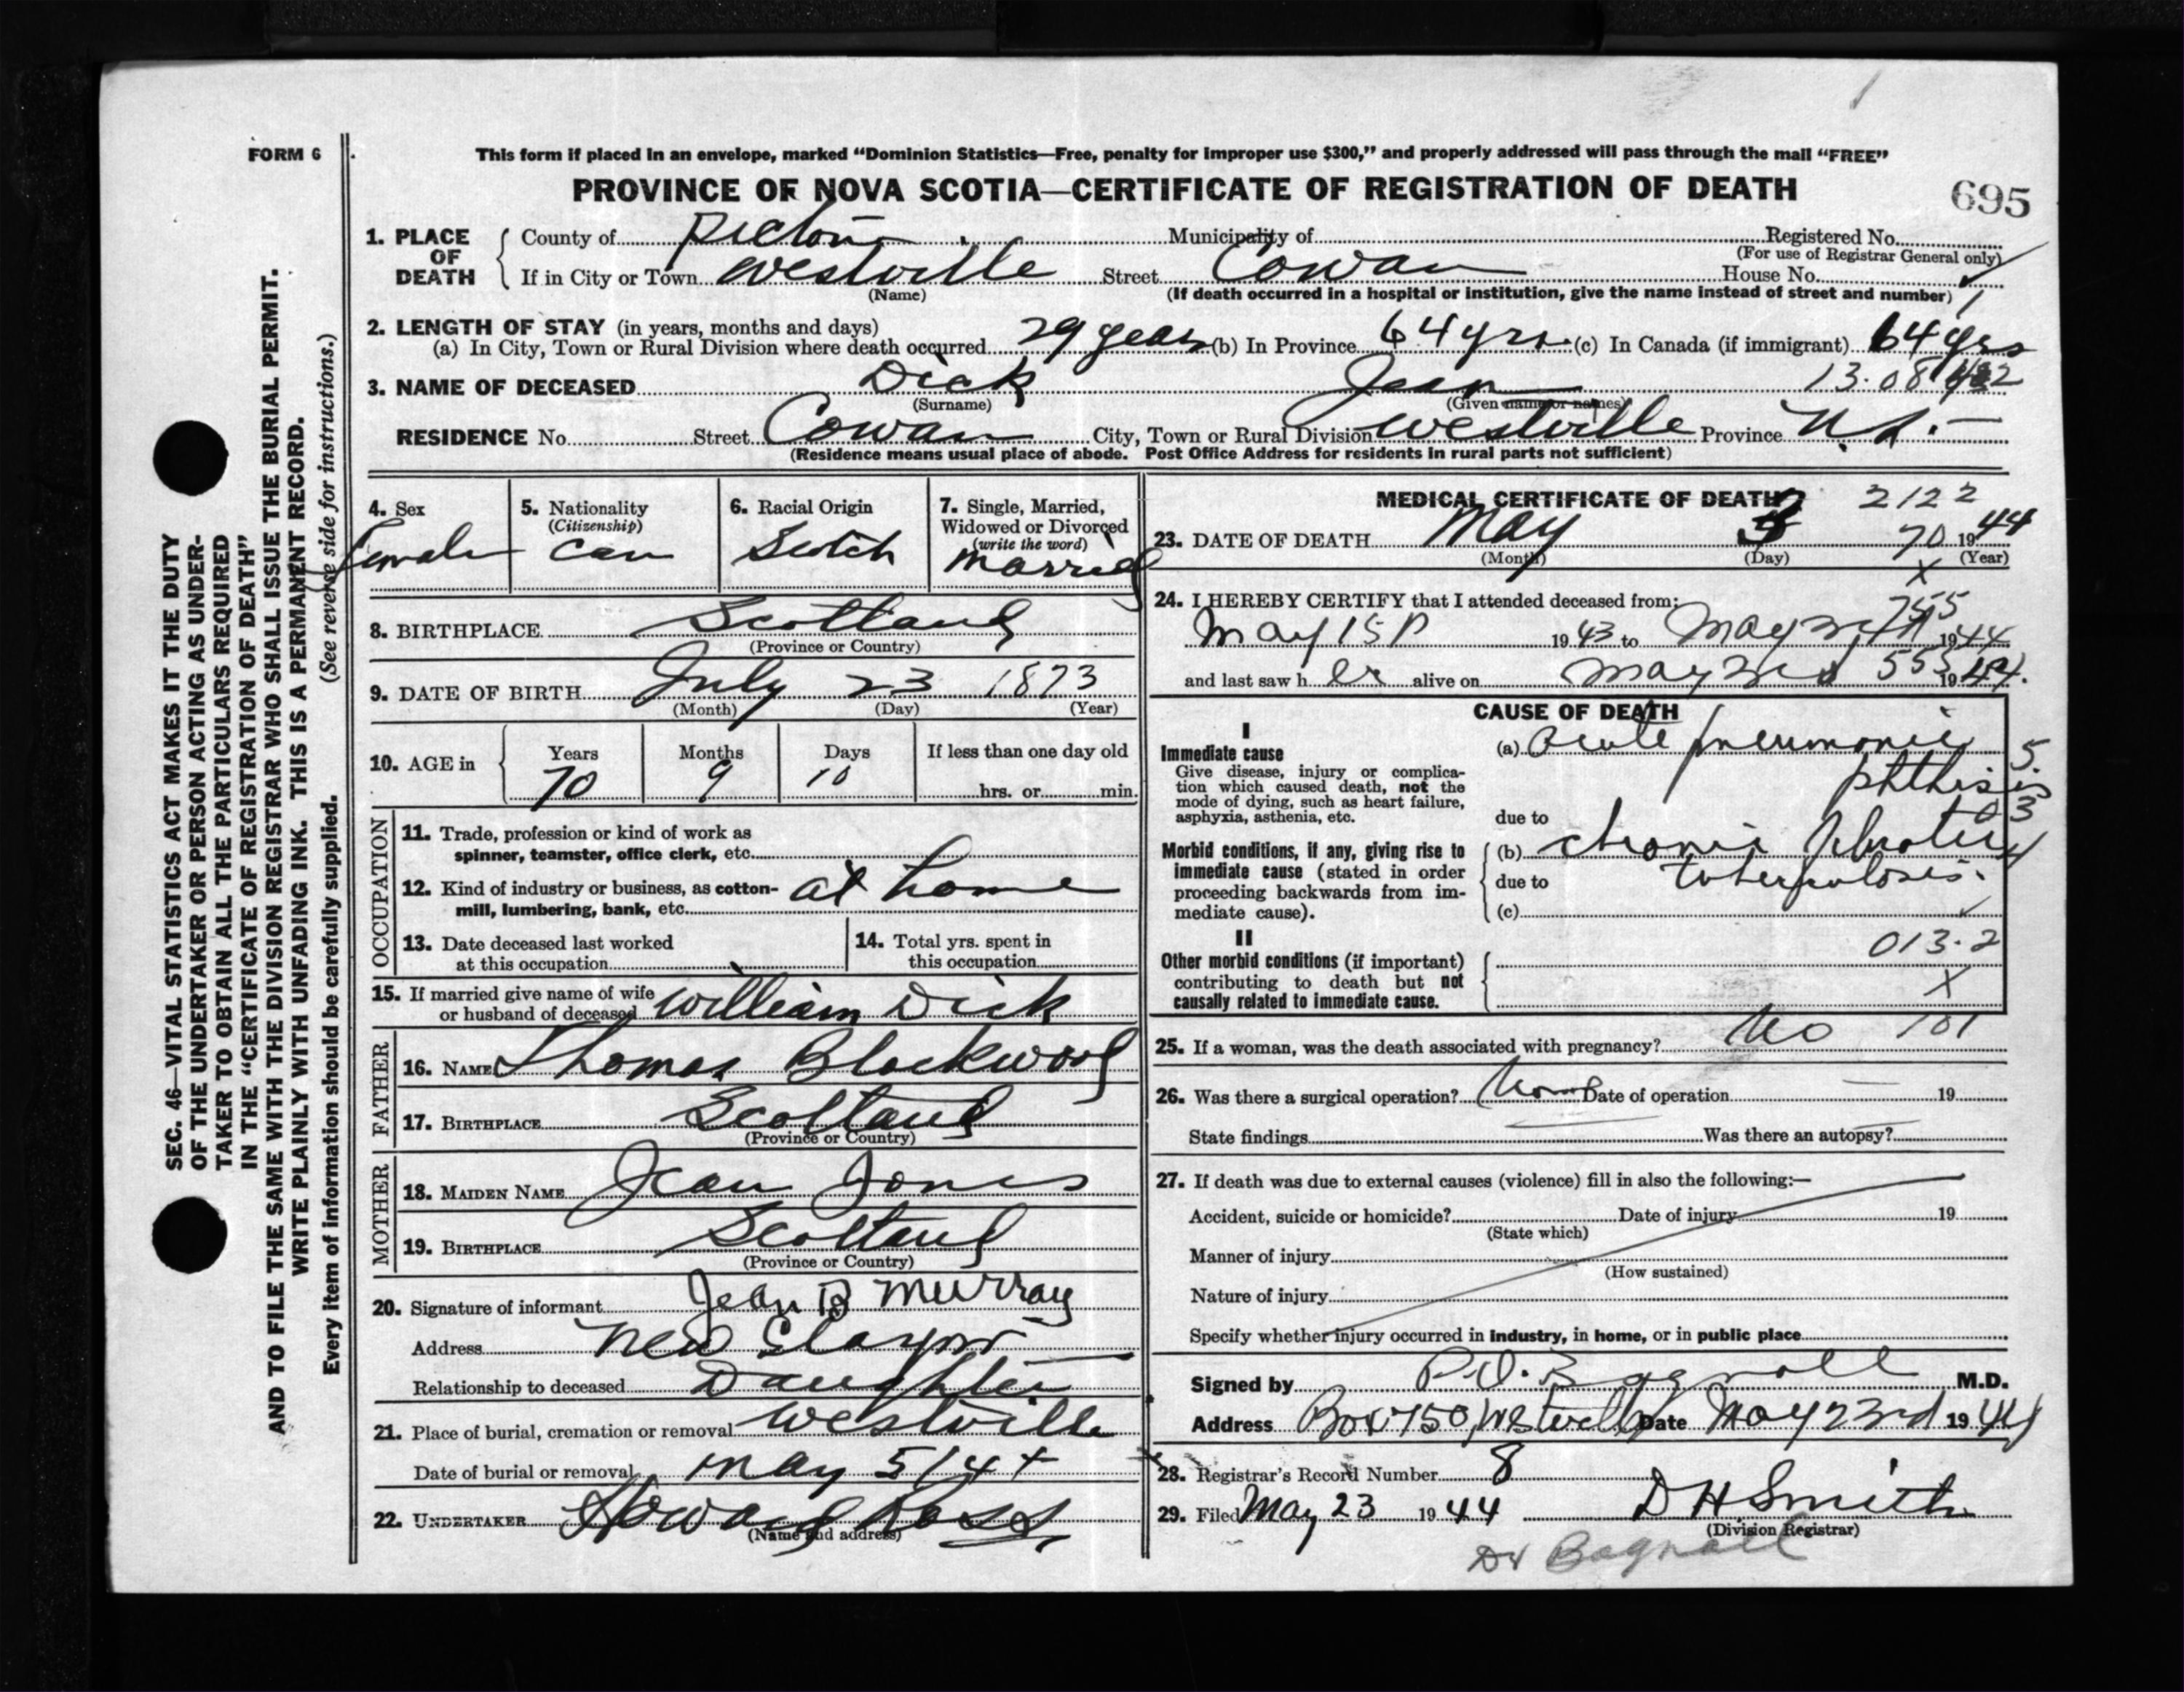 FORM 6
This form if placed in an envelope, marked “Dominion Statistics—Free, penalty for improper use $300,” and properly addressed will pass through the mail “FREE”
PROVINCE OF NOVA SCOTIA—CERTIFICATE OF REGISTRATION OF DEATH
695
1. PLACE OF DEATH { County of Pictou Municipality of Registered No.
(For use of Registrar General only)
If in City or Town Westville Street Cowan House No.
(Name)
(If death occurred in a hospital or institution, give the name instead of street and number)
2. LENGTH OF STAY (in years, months and days)
(a) In City, Town or Rural Division where death occurred 29 years (b) In Province 64 yrs. (c) In Canada (if immigrant) 64 yrs
3. NAME OF DECEASED Dick Jean 13.08
(Surname) (Given name or names)
RESIDENCE No. Street Cowan City, Town or Rural Division Westville Province N.S.
(Residence means usual place of abode. Post Office Address for residents in rural parts not sufficient)
4. Sex
Female
5. Nationality
(Citizenship)
Can
6. Racial Origin
Scotch
7. Single, Married,
Widowed or Divorced
(write the word)
Married
8. BIRTHPLACE Scotland
(Province or Country)
9. DATE OF BIRTH July 23 1873
(Month) (Day) (Year)
10. AGE in { Years Months Days If less than one day old
70 9 10 hrs. or min.
OCCUPATION
11. Trade, profession or kind of work as
spinner, teamster, office clerk, etc.
12. Kind of industry or business, as cotton- at home
mill, lumbering, bank, etc.
13. Date deceased last worked
at this occupation
14. Total yrs. spent in
this occupation
15. If married give name of wife
or husband of deceased William Dick
FATHER
16. NAME Thomas Blackwood
17. BIRTHPLACE Scotland
(Province or Country)
MOTHER
18. MAIDEN NAME Jean Jones
19. BIRTHPLACE Scotland
(Province or Country)
20. Signature of informant Jean B Murray
Address New Glasgow
Relationship to deceased Daughter
21. Place of burial, cremation or removal Westville
Date of burial or removal May 5/44
22. UNDERTAKER Howard Ross
(Name and address)
MEDICAL CERTIFICATE OF DEATH 2122
23. DATE OF DEATH May 3 70 1944
(Month) (Day) (Year)
X
24. I HEREBY CERTIFY that I attended deceased from:
755
May 1st 1943 to May 1944
and last saw her alive on May 3rd 1944.
CAUSE OF DEATH
I
Immediate cause
Give disease, injury or complica-
tion which caused death, not the
mode of dying, such as heart failure,
asphyxia, asthenia, etc.
(a) Acute pneumonic
phthisis
due to
Morbid conditions, if any, giving rise to
immediate cause (stated in order
proceeding backwards from im-
mediate cause).
(b) chronic
due to tuberculosis.
(c)
II
Other morbid conditions (if important)
contributing to death but not
causally related to immediate cause.
013.2
X
25. If a woman, was the death associated with pregnancy? No 101
26. Was there a surgical operation? None Date of operation — 19
State findings Was there an autopsy?
27. If death was due to external causes (violence) fill in also the following:—
Accident, suicide or homicide? Date of injury 19
(State which)
Manner of injury
(How sustained)
Nature of injury
Specify whether injury occurred in industry, in home, or in public place
Signed by P.O. Bagnall M.D.
Address Box 750, Westville Date May 23rd 1944
28. Registrar's Record Number 8
29. Filed May 23 1944 D H Smith
(Division Registrar)
Dr Bagnall
SEC. 46—VITAL STATISTICS ACT MAKES IT THE DUTY
OF THE UNDERTAKER OR PERSON ACTING AS UNDER-
TAKER TO OBTAIN ALL THE PARTICULARS REQUIRED
IN THE “CERTIFICATE OF REGISTRATION OF DEATH”
AND TO FILE THE SAME WITH THE DIVISION REGISTRAR WHO SHALL ISSUE THE BURIAL PERMIT.
WRITE PLAINLY WITH UNFADING INK. THIS IS A PERMANENT RECORD.
Every item of information should be carefully supplied. (See reverse side for instructions.)